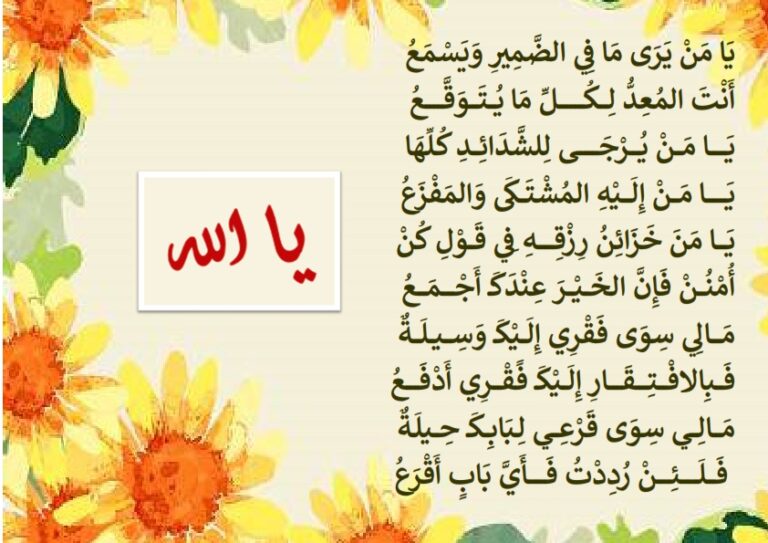 يَا مَنْ يَرَى مَا فِي الضَّمِيرِ وَيَسْمَعُ
أَنْتَ المُعِدُّ لِكُـــلِّ مَا يُتَـوَقَّـــعُ
يَــا مَـنْ يُـرْجَـــى لِلشَّدَائِـدِ كُلِّهَا
يَـــا مَـنْ إِلَـيْهِ المُشْتَكَى وَالمَفْزَعُ
يَـا مَنَ خَزَائِنُ رِزْقِــهِ فِي قَـوْلِ كُنْ
أُمْنُـنْ فَإِنَّ الخَـيْـرَ عِنْدَكَ أَجْــمَـعُ
مَـالِي سِوَى فَقْرِي إِلَـيْكَ وَسِـيلَـةٌ
فَـبِالافْـتِـقَـارِ إِلَيْكَ فًقْـرِي أَدْفَــعُ
مَـالِـي سِوَى قَرْعِـي لِبَابِكَ حِـيلَةٌ
فَـلَـــئِــنْ رُدِدْتُ فَــأَيَّ بَابٍ أَقْرَعُ
يا الله